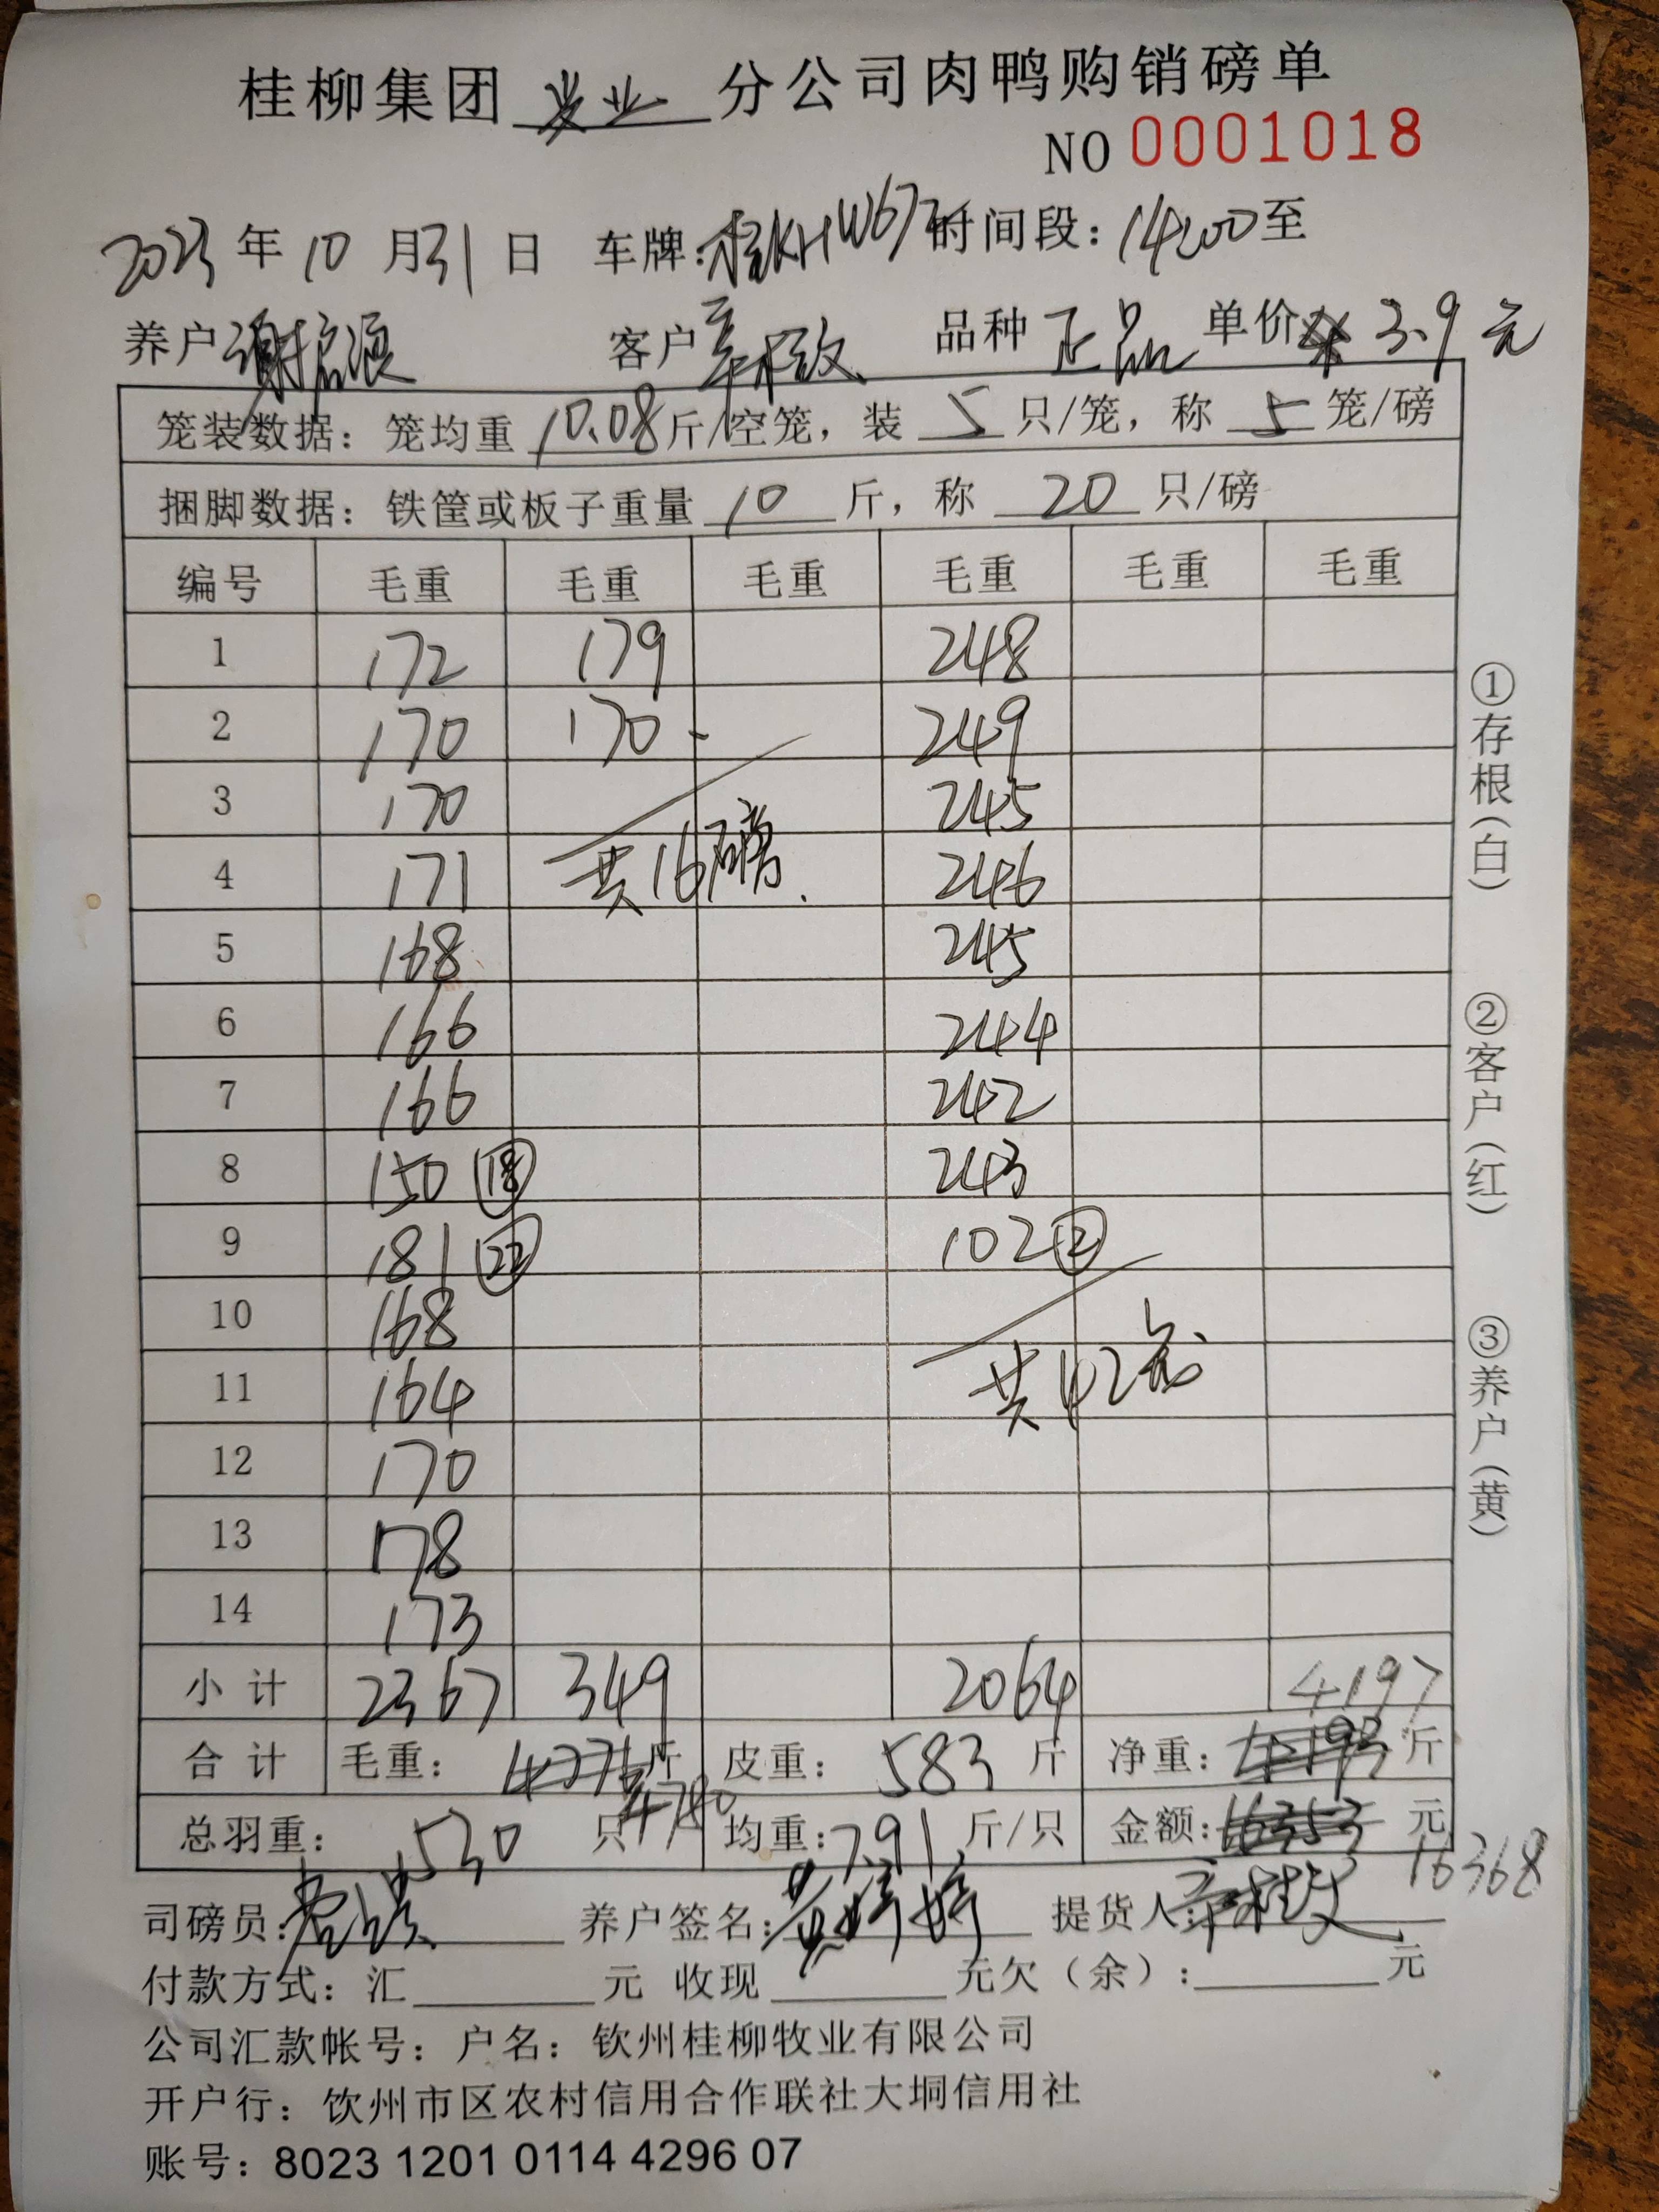 桂柳集团 业 分公司肉鸭购销磅单
NO 0001018
2023 年 10 月 31 日 车牌:桂KHW672 时间段: 14:00 至
养户 谢 源 客户 品种 正品 单价 3.9 元
笼装数据: 笼均重 10.08 斤/空笼, 装 5 只/笼, 称 5 笼/磅
捆脚数据: 铁筐或板子重量 10 斤, 称 20 只/磅
编号 毛重 毛重 毛重 毛重 毛重 毛重
1 172 179 248
2 170 170 249
3 170 245
共16磅.
4 171 246
5 168 245
6 166 244
7 166 242
8 150 ⑱ 243
9 181 ㉒ 102
10 168
11 164
共42笼
12 170
13 178
14 173
小计 2367 349 2064 4197
合计 毛重: 4776 斤 皮重: 583 斤 净重: 4193 斤
4780
总羽重: 530 只 均重: 7.91 斤/只 金额: 16353 元
16368
司磅员: 养户签名: 黄婷婷 提货人:
付款方式: 汇 元 收现 元欠(余): 元
公司汇款帐号: 户名: 钦州桂柳牧业有限公司
开户行: 饮州市区农村信用合作联社大垌信用社
账号: 8023 1201 0114 4296 07
①存根(白)
②客户(红)
③养户(黄)